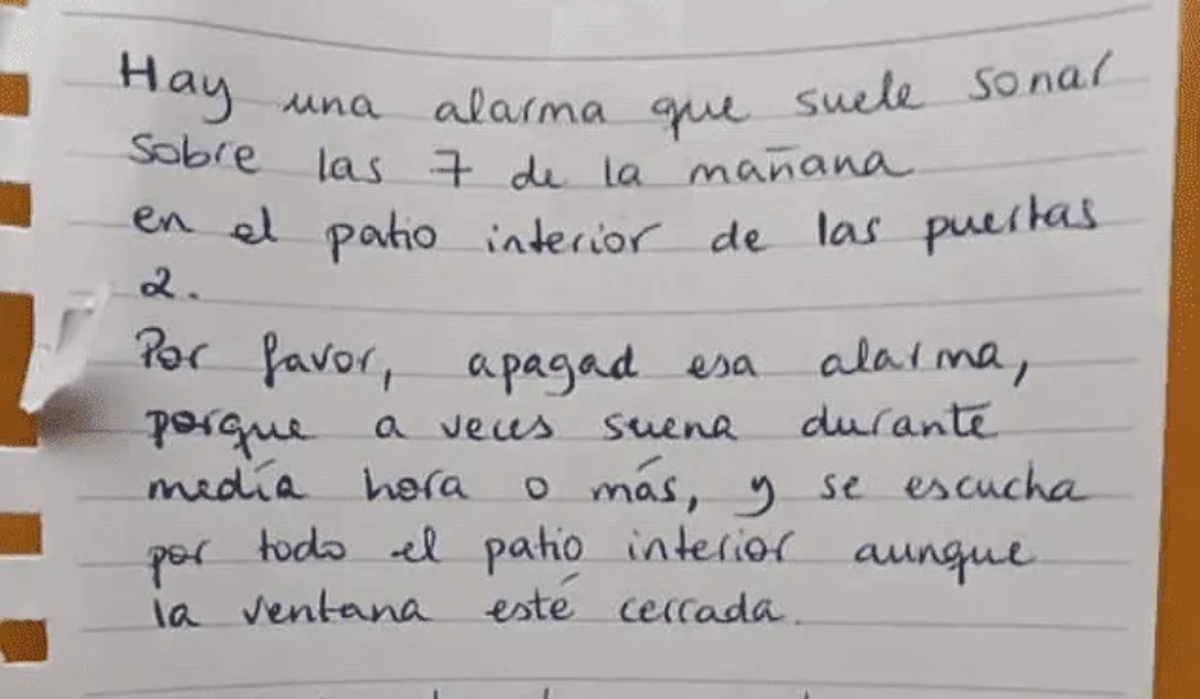 Hay una alarma que suele sonar
sobre las 7 de la mañana
en el patio interior de las puertas
2.
Por favor, apagad esa alarma,
porque a veces suena durante
media hora o más, y se escucha
por todo el patio interior aunque
la ventana esté cerrada.